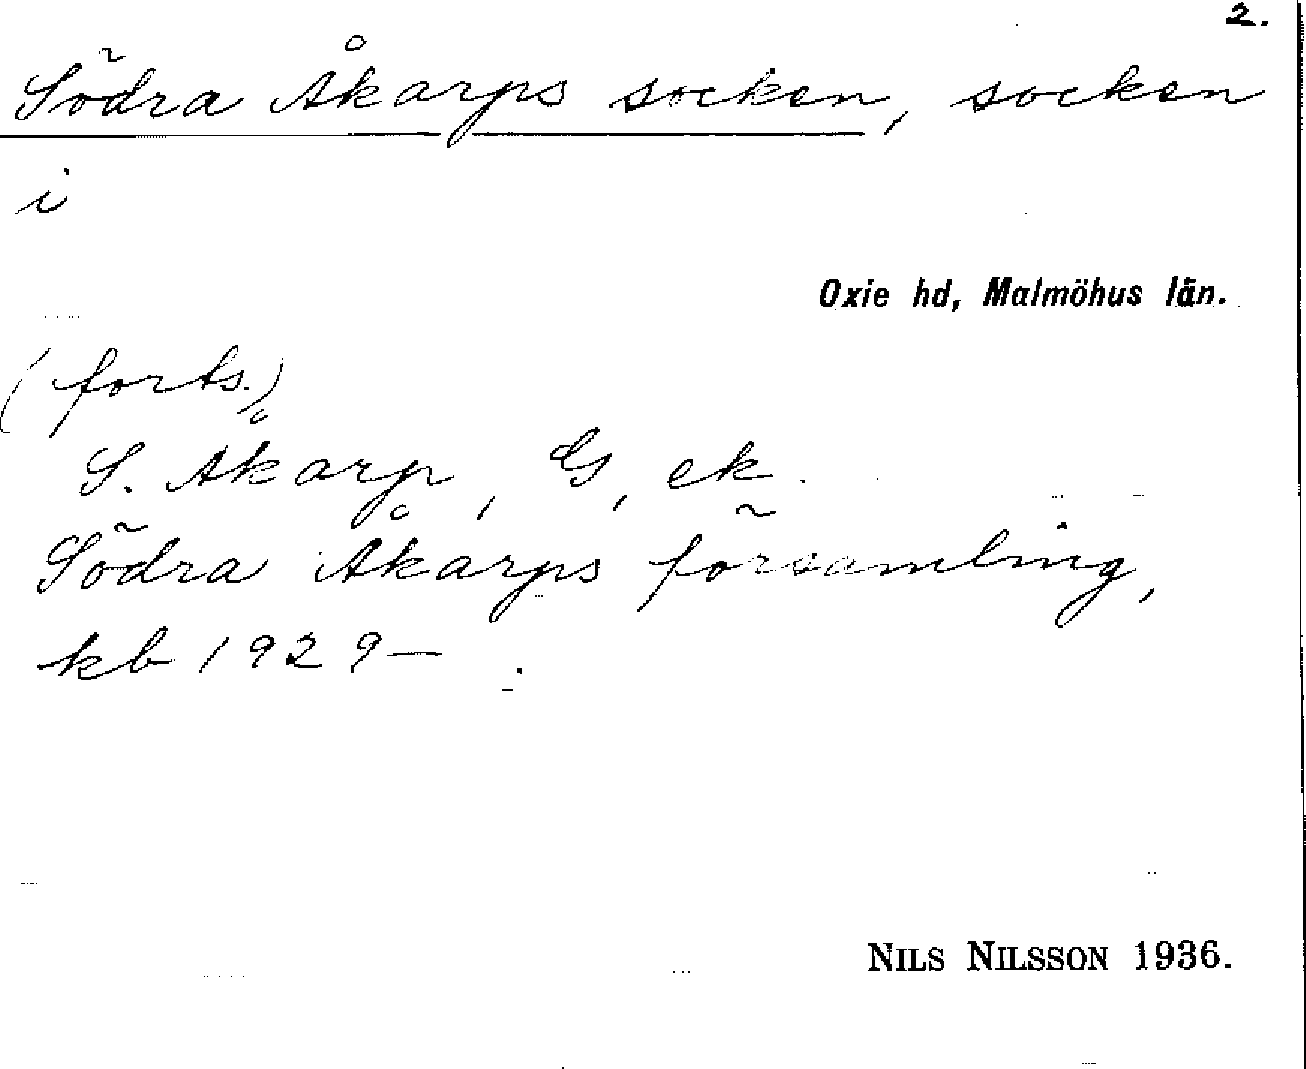 2.
Södra Åkarps socken, socken
i
Oxie hd, Malmöhus län.
(forts.)
S. Åkarp, G, ek.
Södra Åkarps församling,
kb 1929—.
NILS NILSSON 1936.